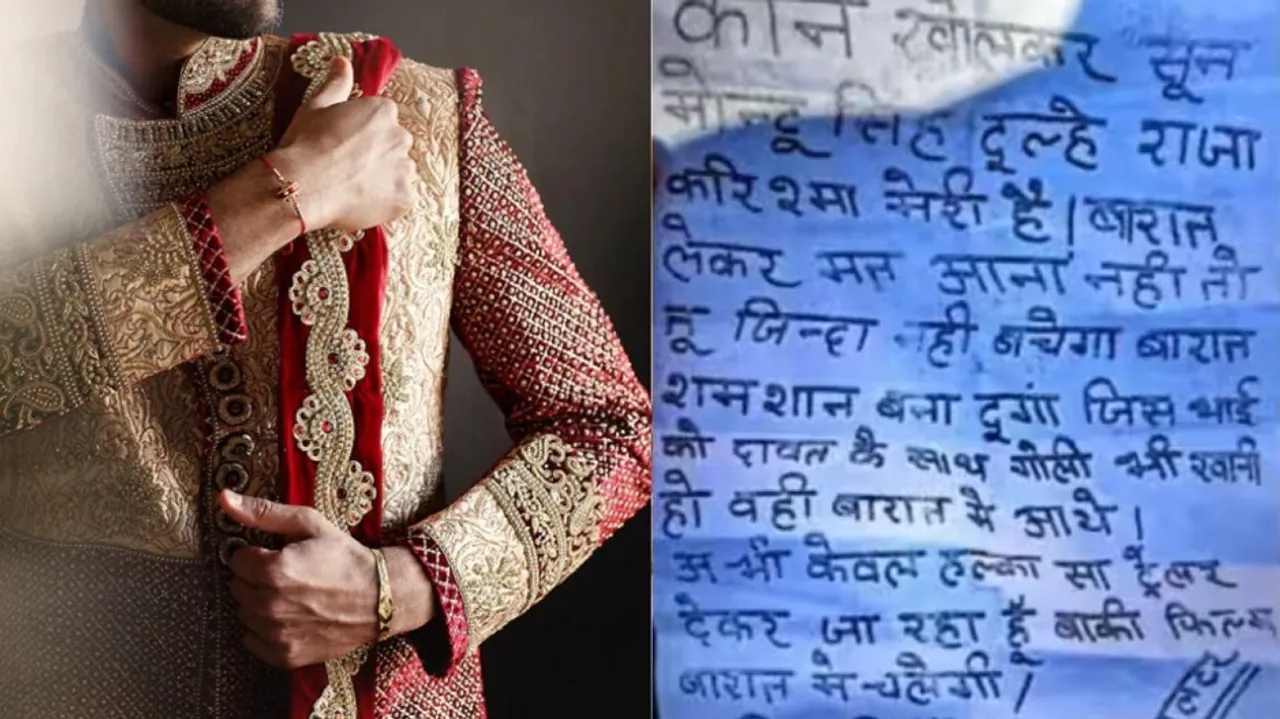 कान खोलकर सून
मोन्टू सिंह दूल्हे राजा
करिश्मा मेरी है। बारात
लेकर मत आना नही तो
तू जिन्दा नही बचेगा बारात
शमशान बना दूगां जिस भाई
को दावत कै साथ गोली भी खानी
हो वही बारात मे आये।
अभी केवल हल्का सा ट्रेलर
देकर जा रहा हूँ बाकी फिल्म
बारात मे चलेगी।